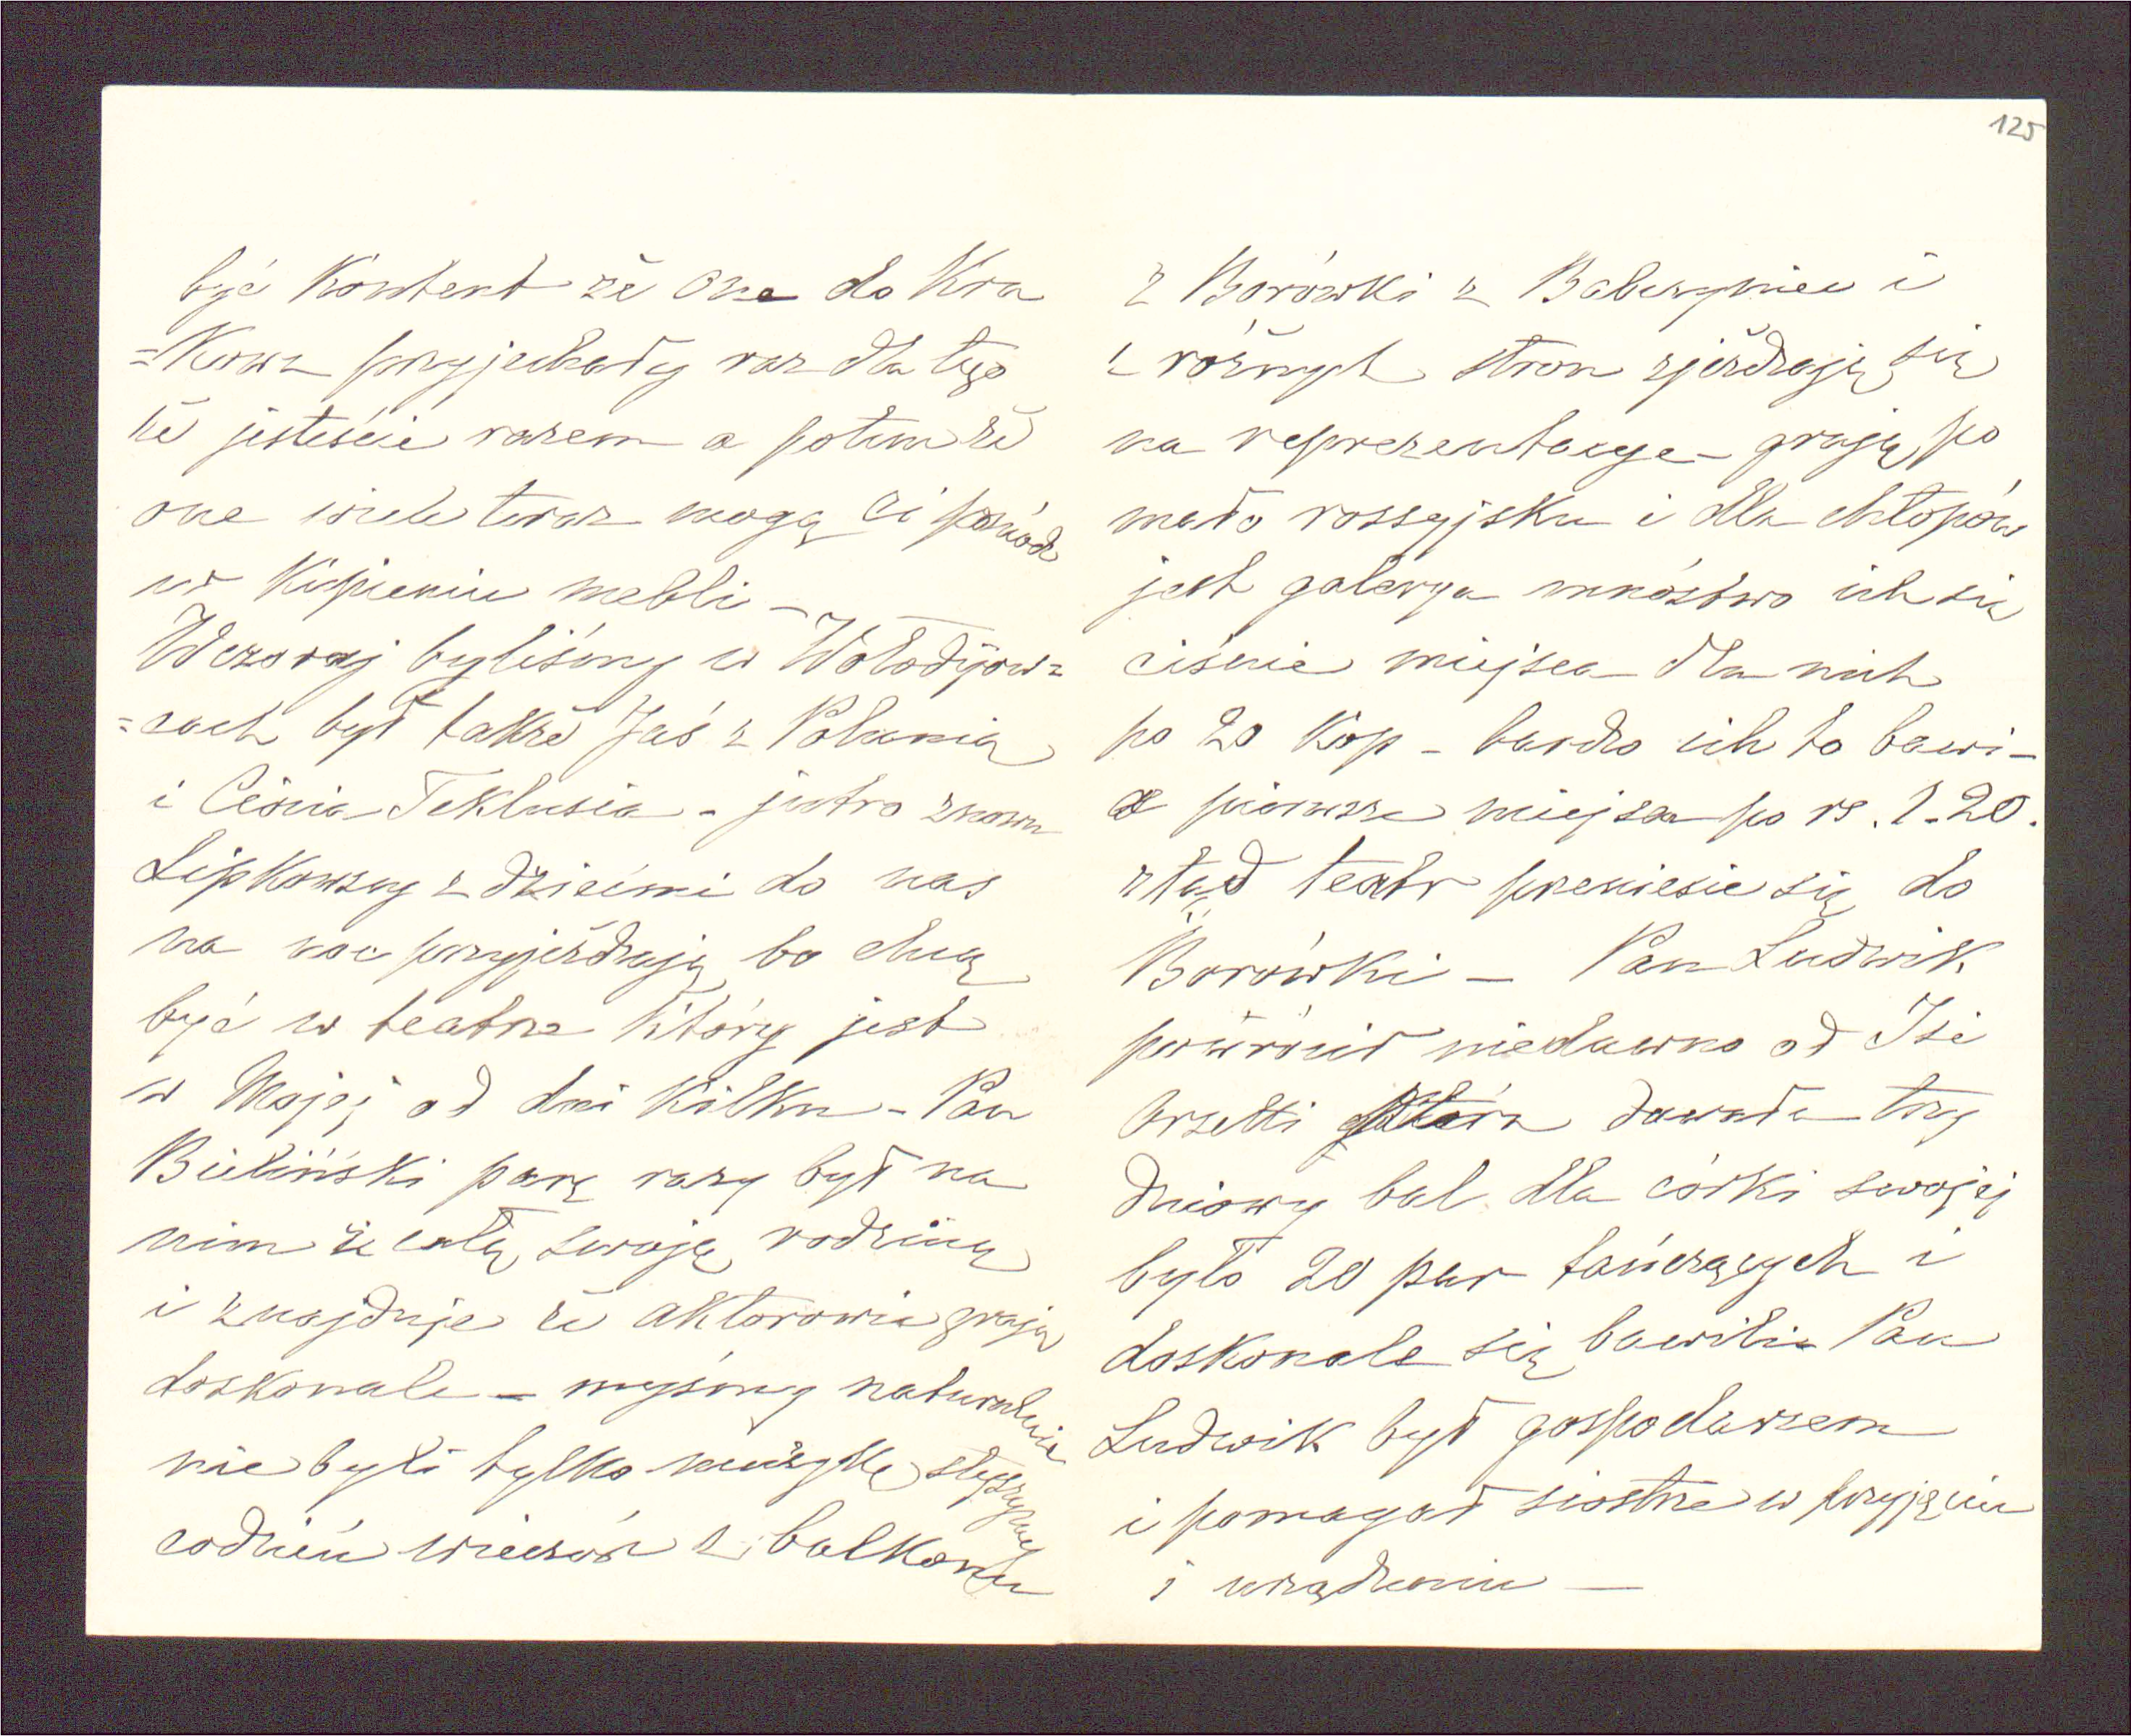 być Kontent że one do Kra
=Kowa przyjechały raz dla tego
że jesteście razem a potem że
one wiele teraz mogą Ci pomódz
w Kupieniu mebli –
Wczoraj byliśmy w Wołodijow=
=cach był także Jaś z Polunią
i Ciocia Teklusia – jutro znowu
Lipkowscy z dziećmi do nas
na noc przyjeżdżają bo chcą
być w teatrze który jest
w Mojej od dni kilku – Pan
Bieliński parę razy był na
nim ze całą swoją rodziną
i znajduje że aktorowie grają
doskonale – myśmy naturalnie
nie byli tylko muzykę słyszymy
codzień wieczór z balkonu
125
z Borówki z Babczyniec i
z różnych stron zjeżdżają się
na reprezentacye – grają po
mało rossyjsku i dla chłopów
jest galerya mnóstwo ich się
ciśnie miejsca dla nich
po 20 Kop – bardzo ich to bawi –
a pierwsze miejsca po rs. 1.20.
ztąd teatr przeniesie się do
Borówki – Pan Ludwik
powrócił niedawno od Isi
która dawała trzy
dniowy bal dla córki swojej
było 20 par tańczących i
doskonale się bawili Pan
Ludwik był gospodarzem
i pomagał siostrze w przyjęciu
i urządzeniu —